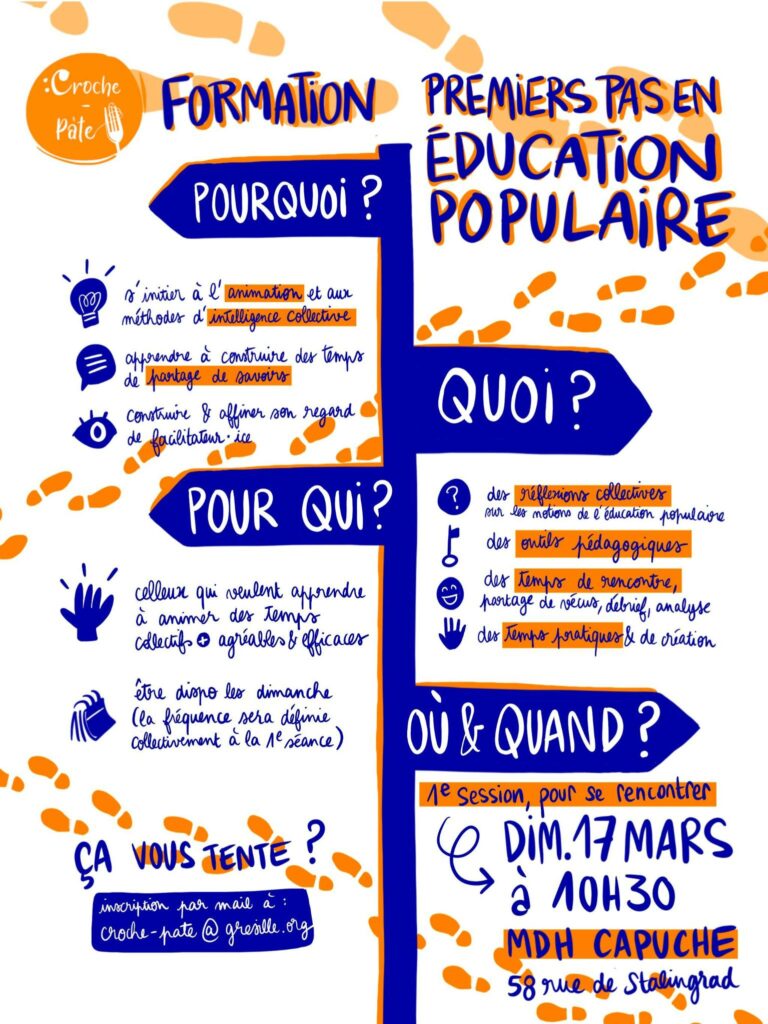 :Croche
-
Pâte
FORMATION
PREMIERS PAS EN
ÉDUCATION
POPULAIRE
POURQUOI ?
s'initier à l'animation et aux
méthodes d'intelligence collective
apprendre à construire des temps
de partage de savoirs
construire & affiner son regard
de facilitateur·ice
QUOI ?
? des réflexions collectives
sur les notions de l'éducation populaire
des outils pédagogiques
des temps de rencontre,
partage de vécus, débrief, analyse
des temps pratiques & de création
POUR QUI ?
celleux qui veulent apprendre
à animer des temps
collectifs + agréables & efficaces
être dispo les dimanche
(la fréquence sera définie
collectivement à la 1e séance)
OÙ & QUAND ?
1e session, pour se rencontrer
DIM. 17 MARS
à 10H30
MDH CAPUCHE
58 rue de Stalingrad
ÇA VOUS TENTE ?
inscription par mail à :
croche-pate@gresille.org